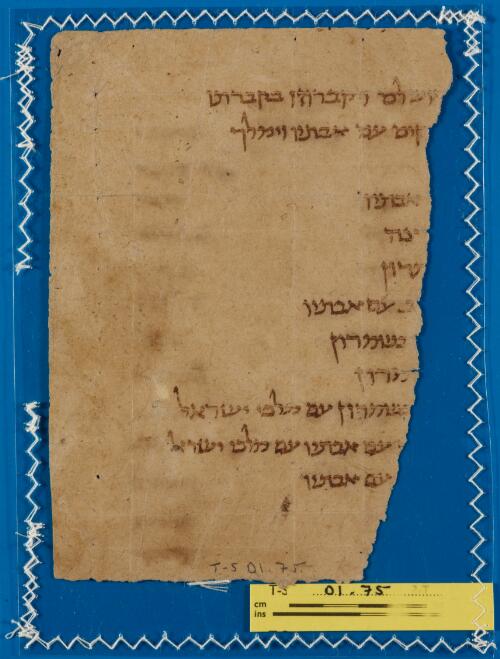 ושלם ויקברוהו בקברות
קים עם אבתיו וימלך
אבתיו
מרון
ב עם אבתיו
בשמרון
מרון
בשמרון עם מלכי ישראל
עם אבתיו עם מלכי ישראל
עם אבתיו
T-S 01.75
T-S 01.75
cm
ins